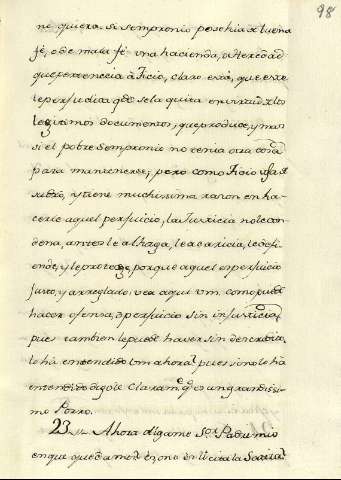 98
no quiera. si sempronio posehia de buena
fé, o de mala fé una hacienda, o heredad
que pertenecia à Ticio, claro está, que este
le perjudica qdo. se la quita en virtud de los
legitimos documentos, que produce, y mas
si el pobre Sempronio no tenia otra cosa
para mantenerse; pero como Ticio usa de
su dro., y tiene muchissima razon en ha-
cerle aquel perjuicio, la Justicia no le con-
dena, antes le alhaga, le acaricia, le defi-
ende, y le protege, porque aquel es perjuicio
justo, y arreglado: vea aqui vm. como puede
hacer ofensa, o perjuicio sin injusticia,
pues tambien le puede haver sin detraccion,
le há entendido vm ahora? pues si no le há
entendido digole claramte. qe. es un grandissi-
mo Porro.
23 Ahora digame Sor. Padre mio
en que quedamos? es, o no es licita la Satira?